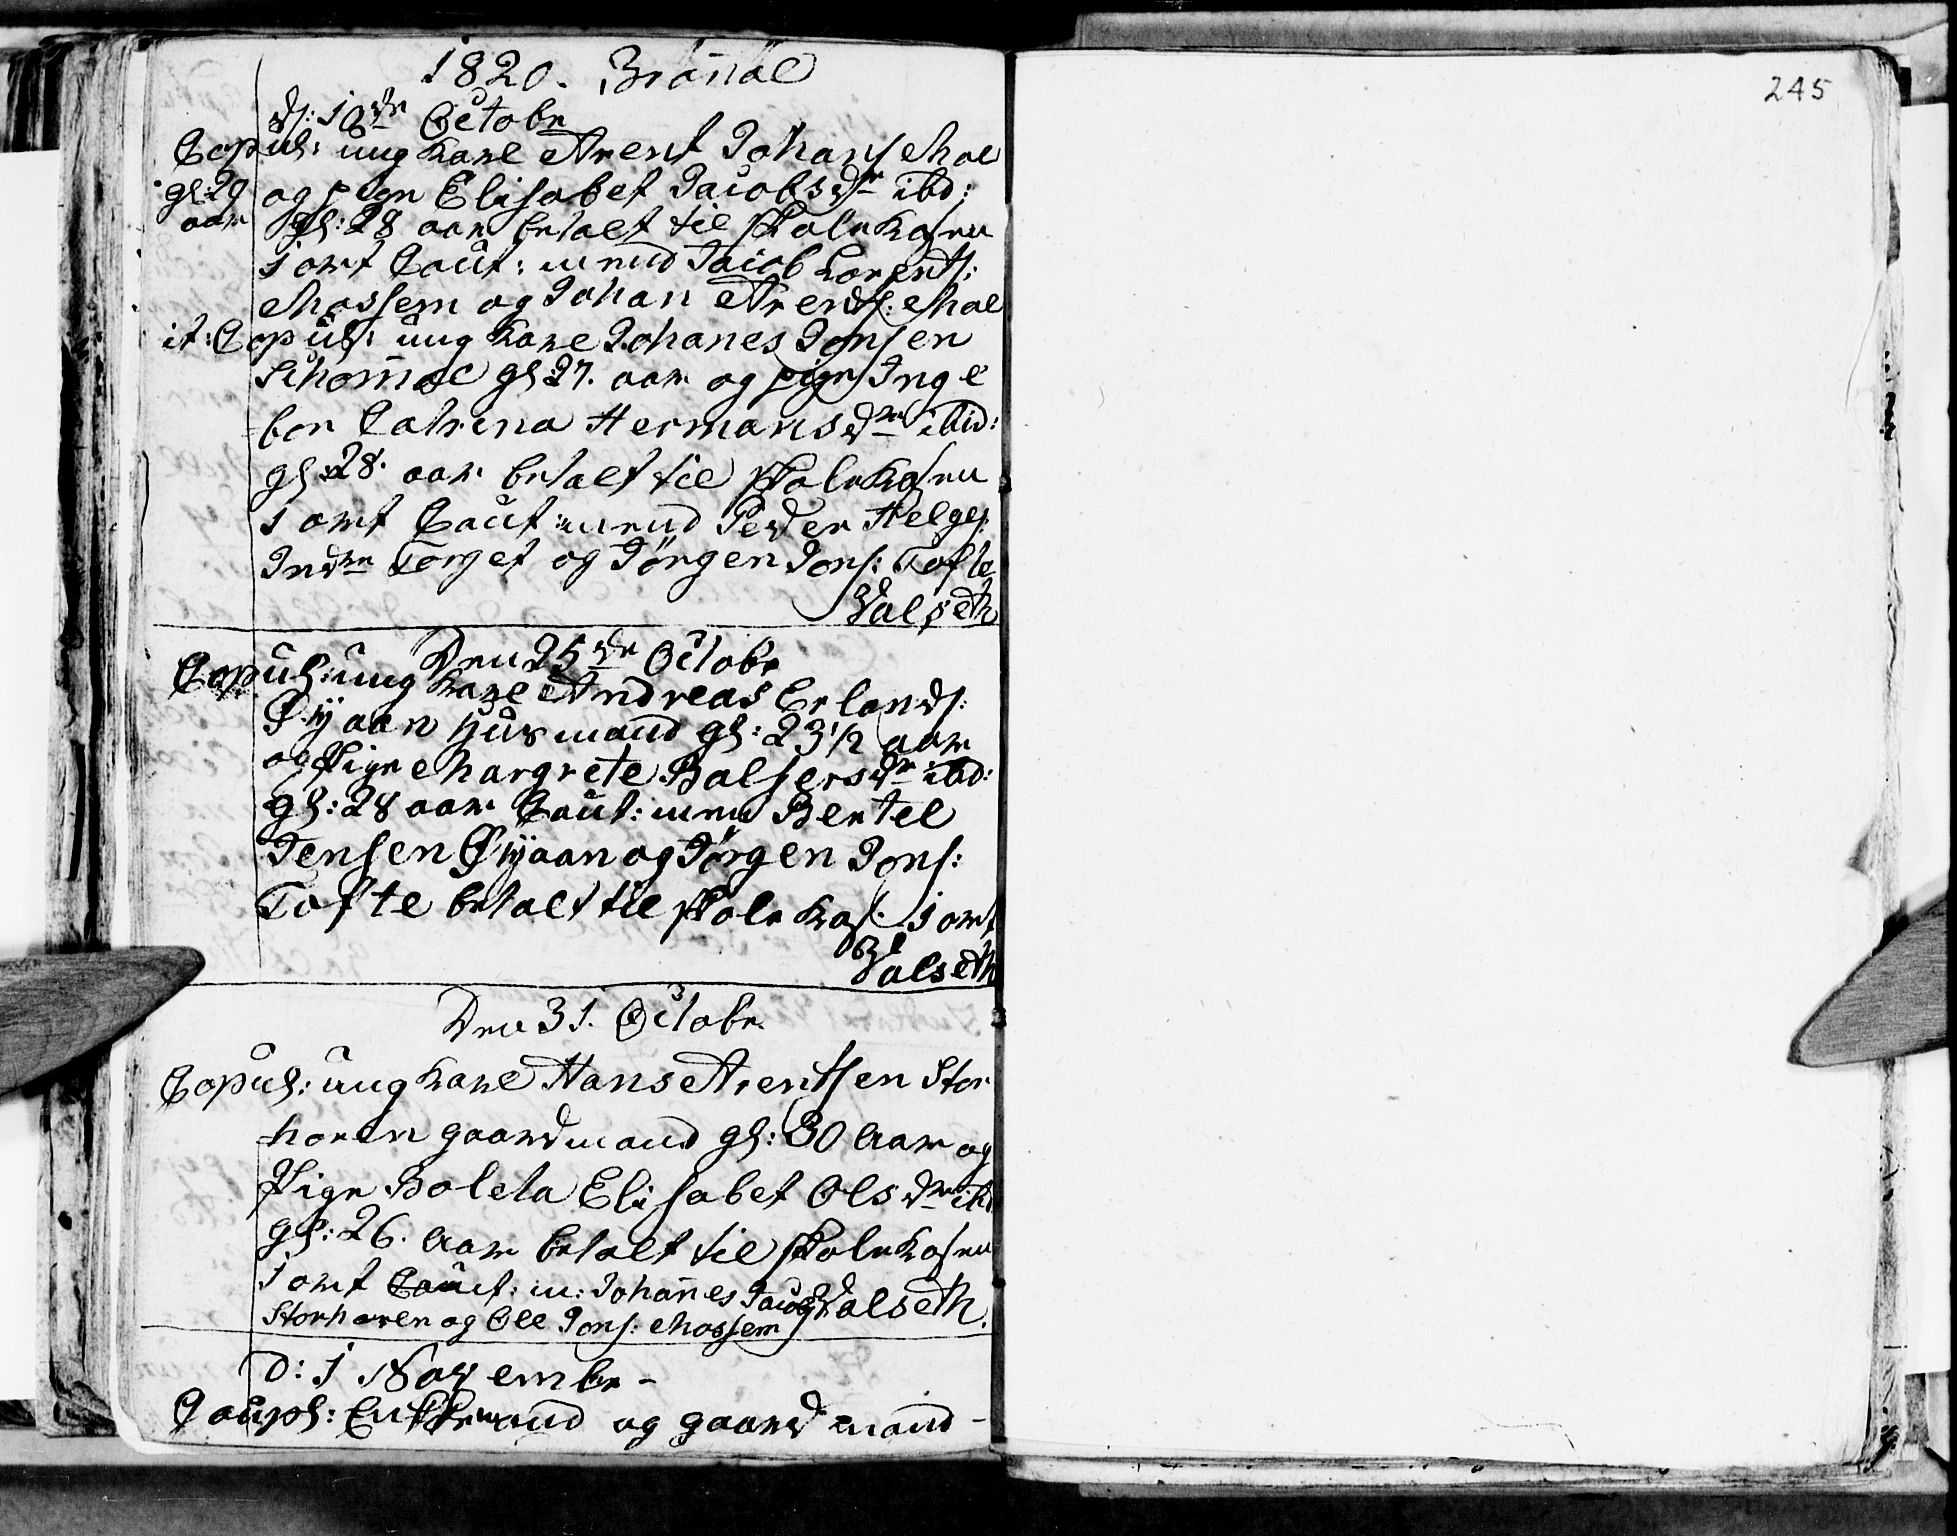 1820. Brönöe
d: 18de Octobr
Copul: ung Karl Arent Johans Moe
gl: 29 og pige Elisabet Jacobsdr ibd:
aar gl: 28 aar betalt til skole Kasen
1 ort Caut: mend Jacob Lorents:
Mossem og Johan Arents: Moe
it: Copul: ung Karl Johanes Jonsen
Schomoe gl 27. aar og pige Inge
bor Catrina Hermansdr ibid:
gl 28. aar betalt til skole Kasen
1 ort Caut: mend Peder Helges:
Indre Torget og Jörgen Jons: Tofte
Valseth
Den 25de Octobr
Copul: ung Karl Andreas Erlands:
Øÿaan Husmand gl: 23 1/2 aar
og Pige Margrete Balsersdr ibd:
gl: 28 aar Caut: men Bertel
Jensen Øÿaan og Jörgen Jons:
Tofte betalt til skole Kas: 1 ort
Valseth
Den 31. Octobr
Copul: ung Karl Hans Arentsen Stor
horen gaardmand gl: 30 Aar og
Pige Boleta Elisabet Olsdr ibd
gl: 26. Aar betalt til skole Kasen
1 ort Caut: m: Johanes Jacobs Valseth
Storhoren og Ole Jons: Mossem
D: 1 Novembr -
Coupl: Enkemand og gaardmand -
245